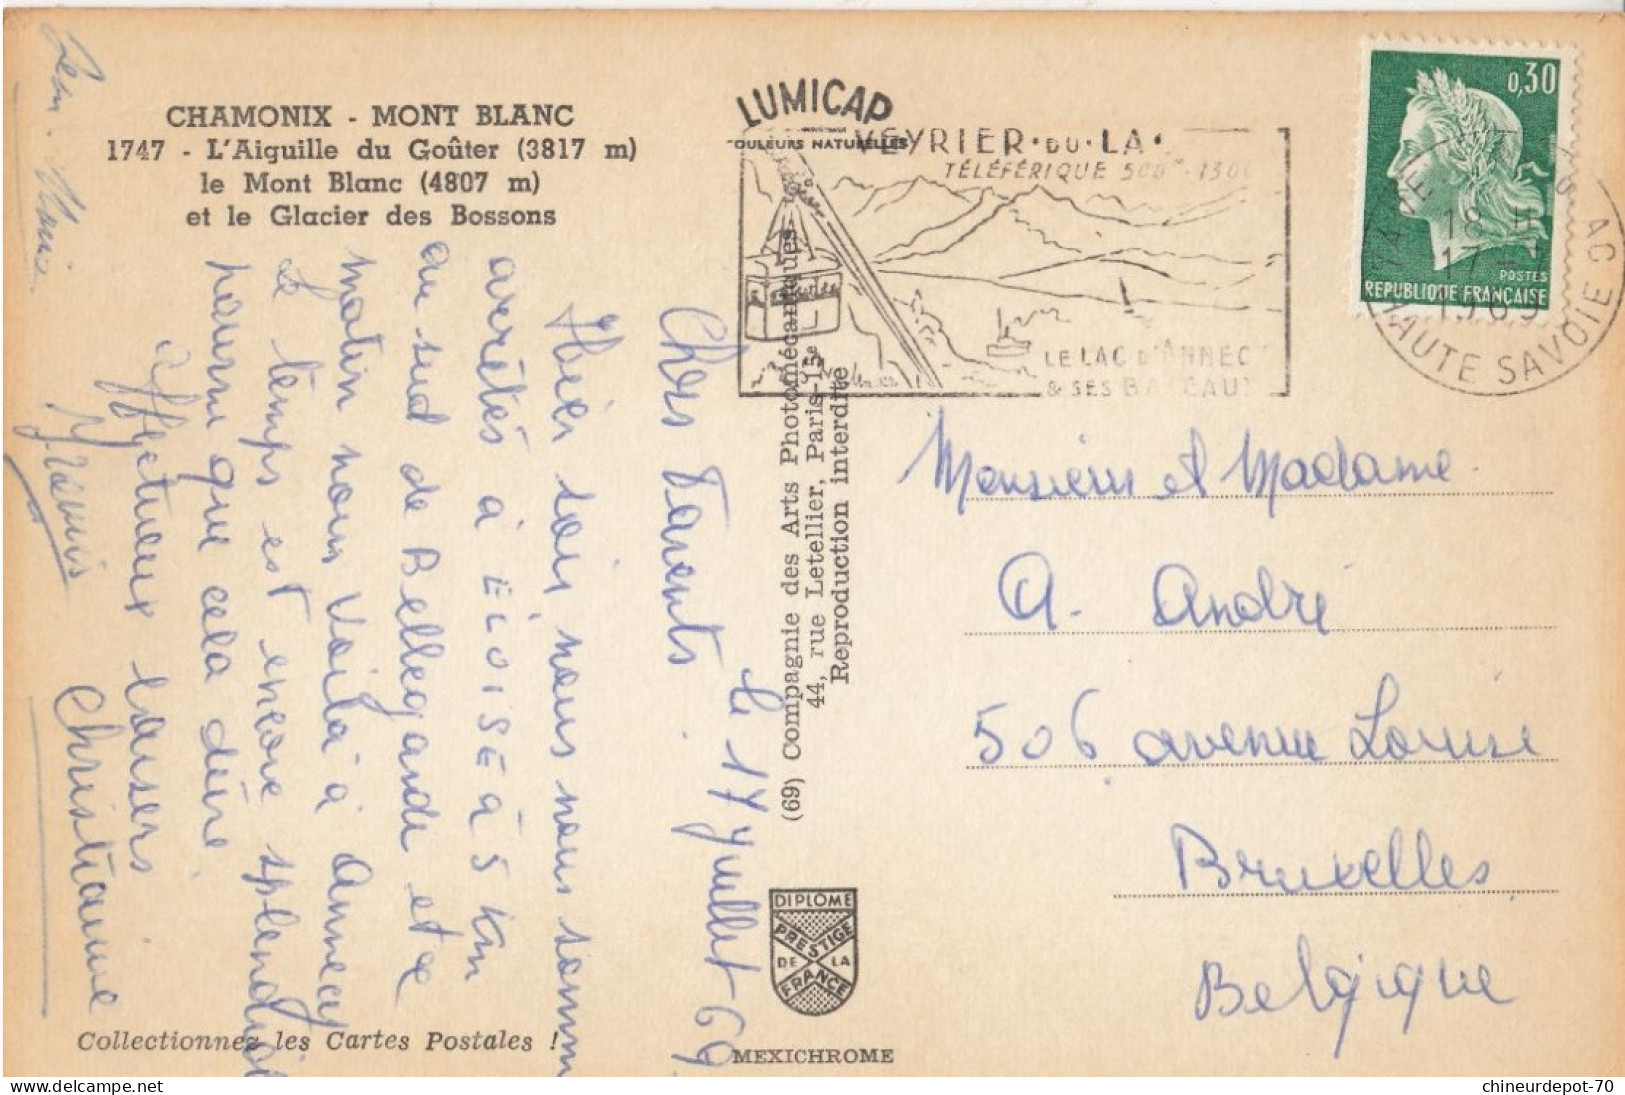 CHAMONIX - MONT BLANC
1747 - L'Aiguille du Goûter (3817 m)
le Mont Blanc (4807 m)
et le Glacier des Bossons
LUMICAP
COULEURS NATURELLES
VEYRIER·DU·LA·
TÉLÉFÉRIQUE 500m-1300
LE LAC D'ANNECY
& SES BATEAUX
0,30
POSTES
REPUBLIQUE FRANÇAISE
18 H
17-7
1969
HAUTE SAVOIE
Le 17 juillet 69
Chers Parents.
Hier soir nous nous somm
arrêtés à ELOISE à 5 km
au sud de Bellegarde et ce
matin nous voilà à Annecy
Le temps est encore splendide
pourvu que cela dure
Affectueux baisers
Christiane
Monsieur et Madame
A. André
506 avenue Louise
Bruxelles
Belgique
(69) Compagnie des Arts Photomécaniques
44, rue Letellier, Paris-15e
Reproduction interdite
DIPLOME
PRESTIGE
DE LA
FRANCE
Collectionnez les Cartes Postales !
MEXICHROME
chineurdepot-70